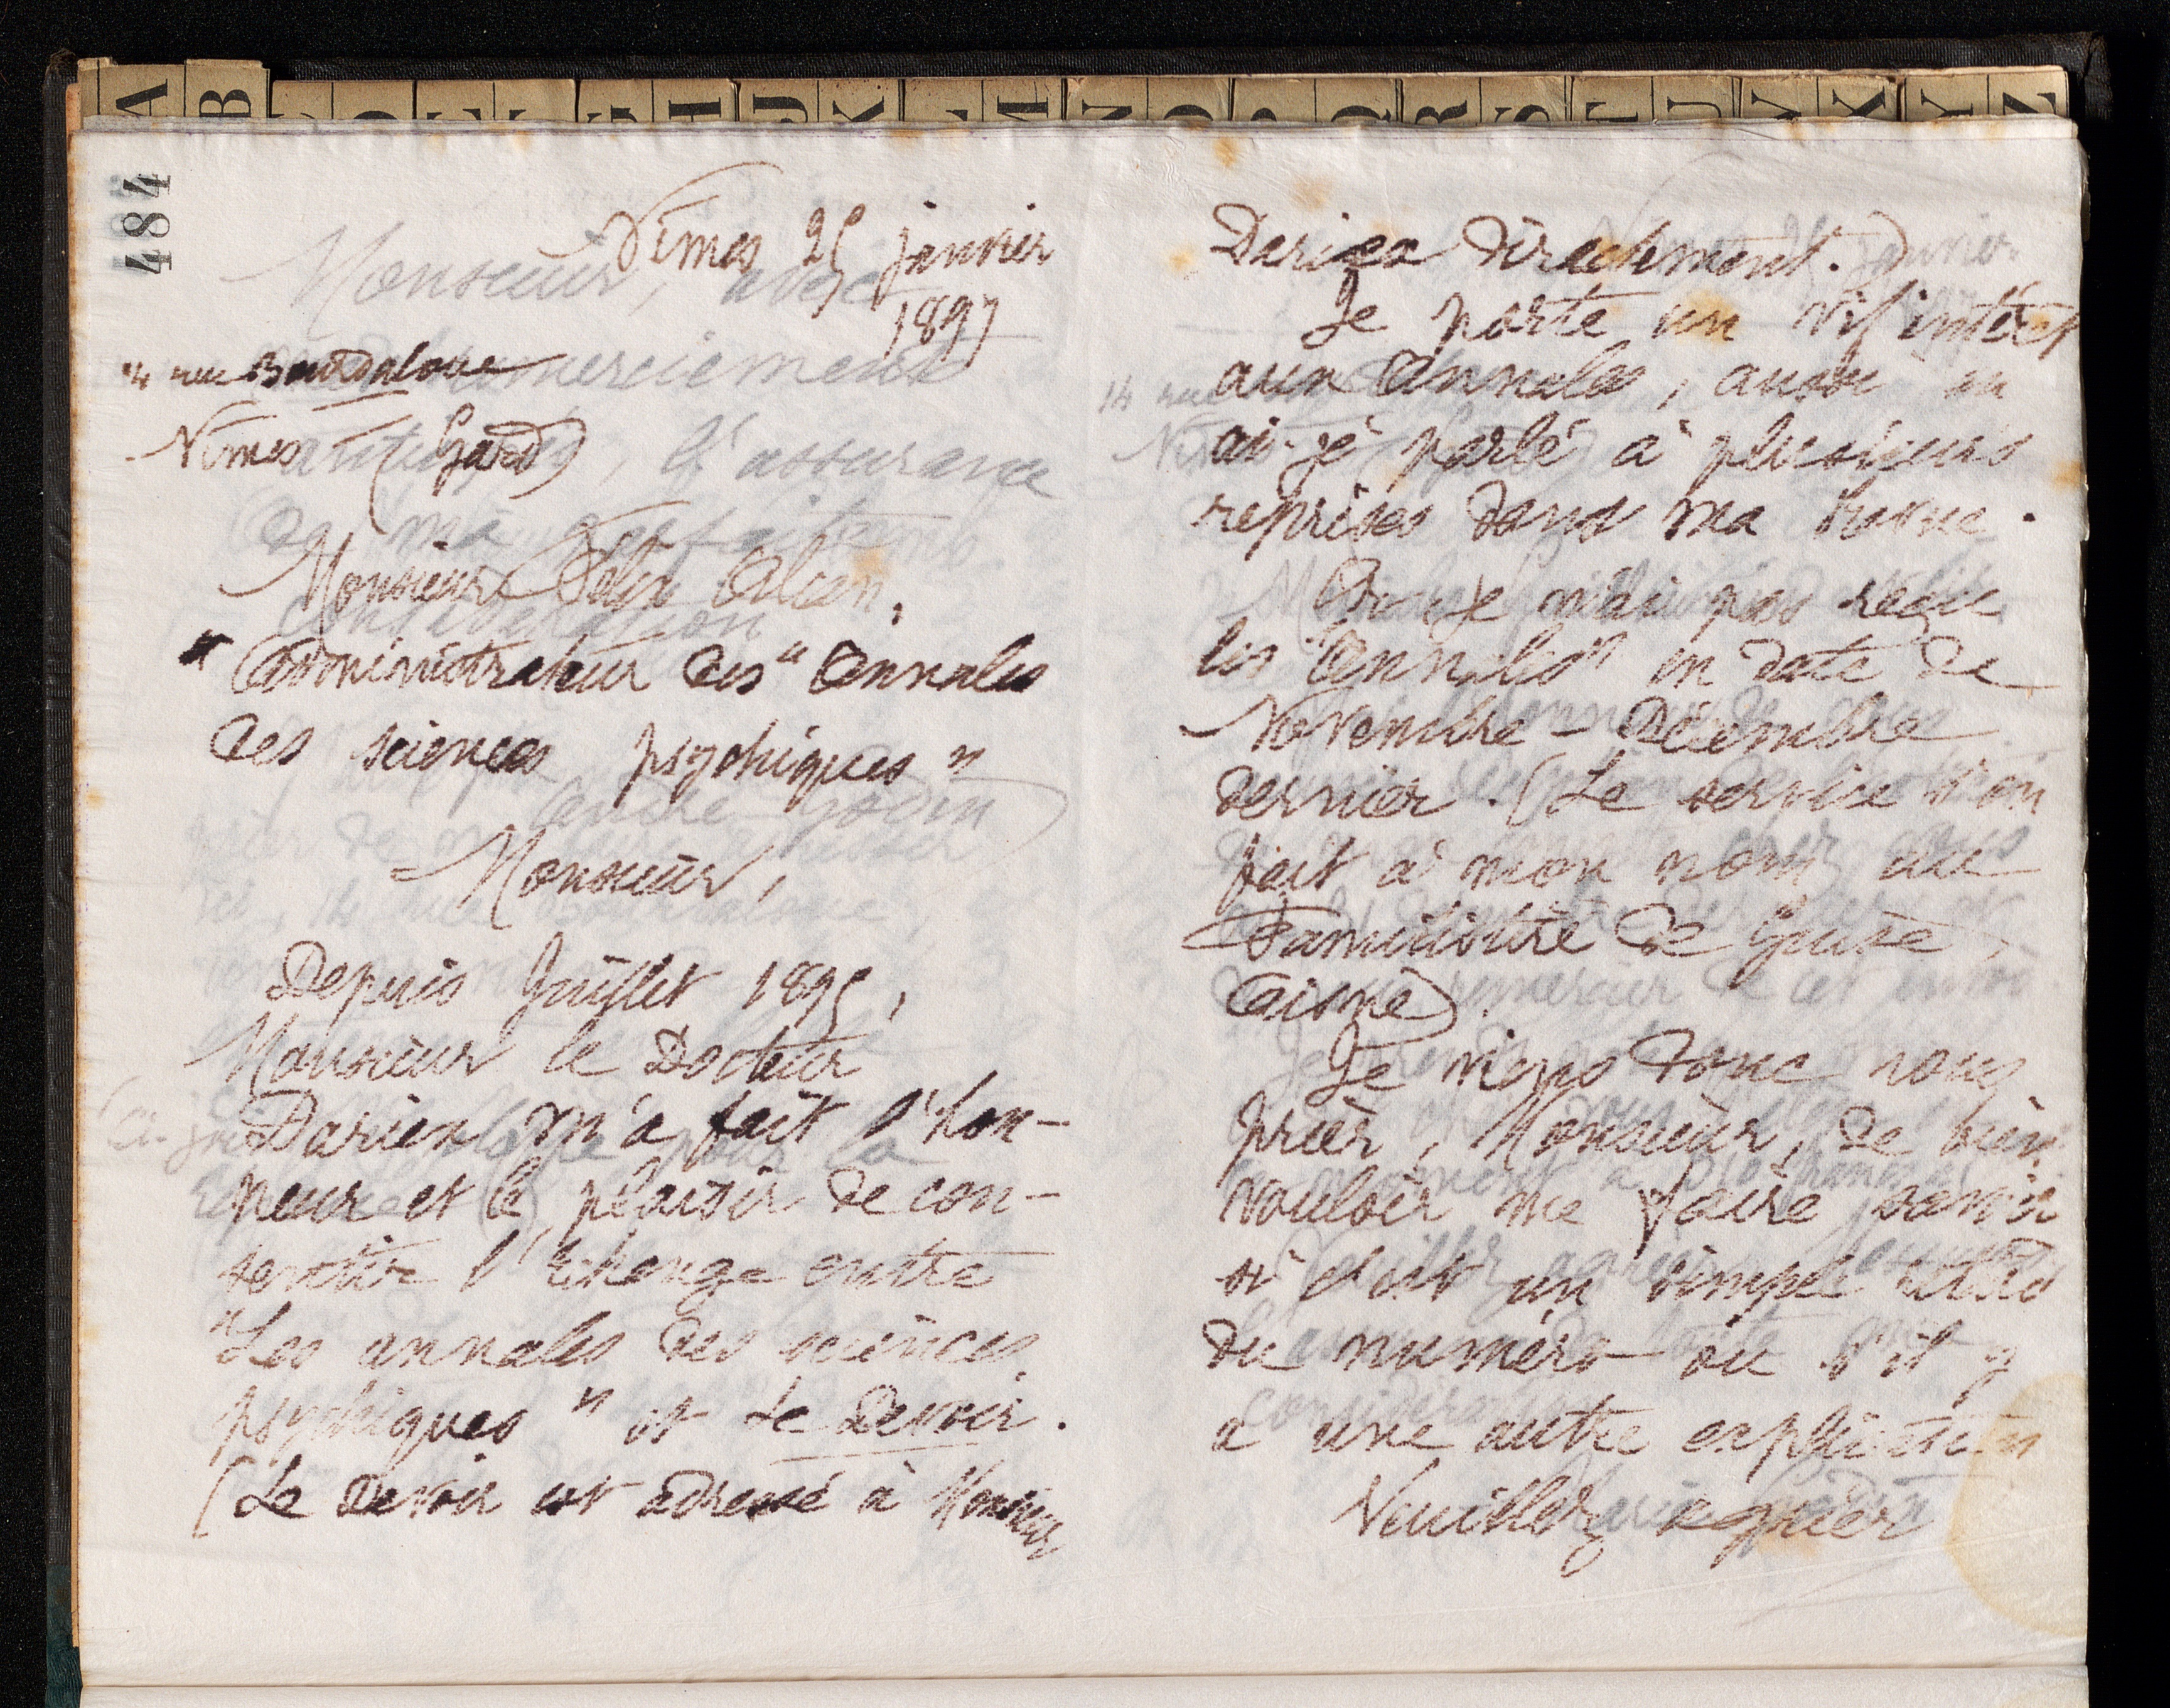 484
Nîmes 25 janvier
1897
14 rue Bourdaloue
Nîmes (Gard)
Monsieur Félix Alcan,
"Administrateur des "Annales
des sciences psychiques"
Monsieur,
Depuis Juillet 1895,
Monsieur le Docteur
Dariex m'a fait l'hon-
neur et le plaisir de con-
sentir l'échange entre
"Les annales des sciences
psychiques" et Le Devoir.
(Le Devoir est adressé à Monsieur
Dariex directement.)
Je porte un vif intérêt
aux Annales, aussi en
ai-je parlé à plusieurs
reprises dans ma revue.
Or je n'ai pas reçu
les "Annales" en date de
Novembre - Décembre
dernier. (Le service s'en
fait à mon nom au
Familistère de Guise,
Aisne)
Je viens donc vous
prier, Monsieur, de bien
vouloir me faire savoir
si c'est un simple retard
du numéro ou s'il y
a une autre explication
Veuillez agréer